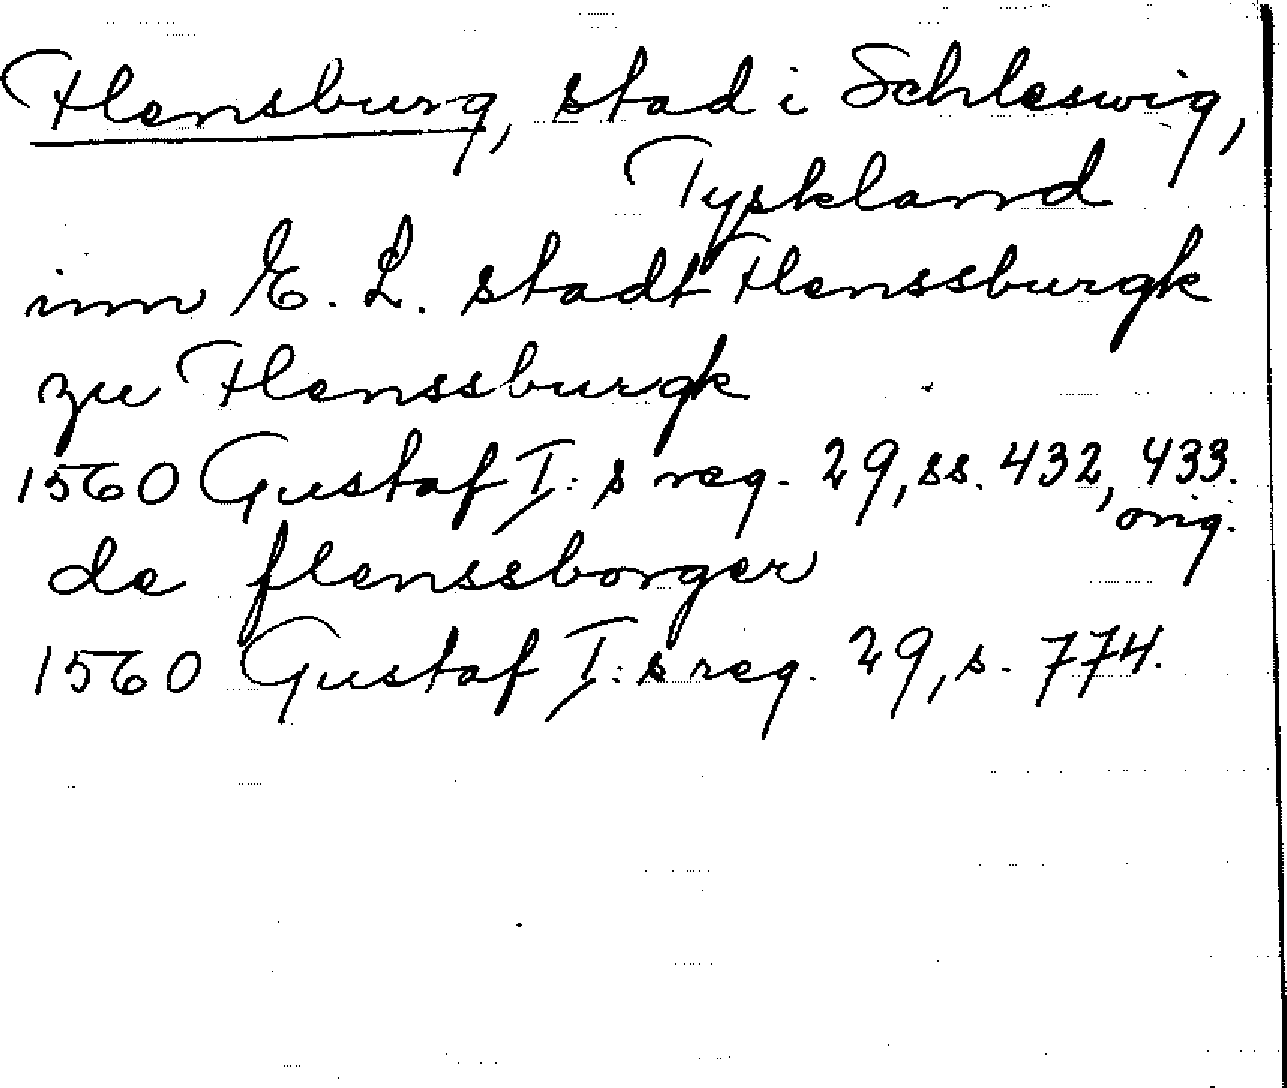 Flensburg, stad i Schleswig,
Tyskland
inn E. L. stadt Flenssburgk
zu Flenssburgk
1560 Gustaf I:s reg. 29, ss. 432, 433.
orig.
de flenssborger
1560 Gustaf I:s reg. 29, s. 774.